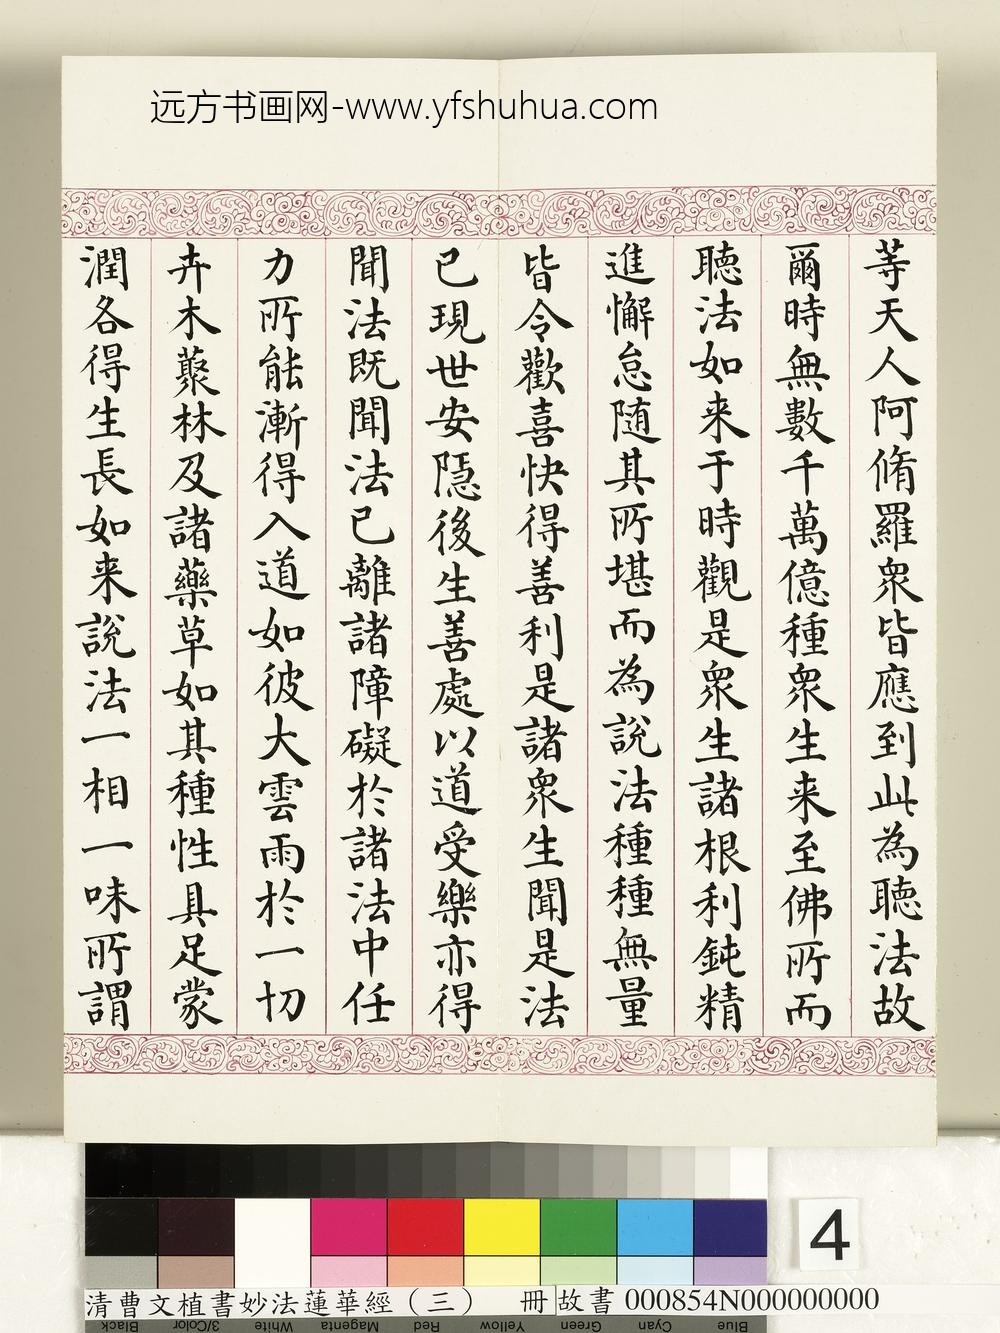 远方书画网-www.yfshuhua.com
等天人阿脩羅眾皆應到此為聽法故
爾時無數千萬億種眾生来至佛所而
聽法如来于時觀是眾生諸根利鈍精
進懈怠随其所堪而為說法種種無量
皆令歡喜快得善利是諸眾生聞是法
已現世安隱後生善處以道受樂亦得
聞法既聞法已離諸障礙於諸法中任
力所能漸得入道如彼大雲雨於一切
卉木藂林及諸藥草如其種性具足蒙
潤各得生長如来說法一相一味所謂
4
清曹文植書妙法蓮華經（三） 冊 故書 000854N000000000
Black 3/Color White Magenta Red Yellow Green Cyan Blue